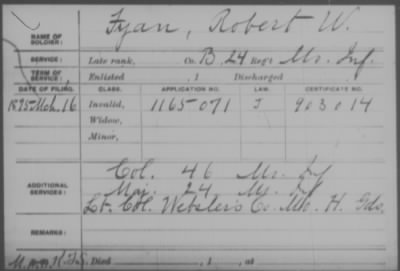 NAME OF SOLDIER: Fyan, Robert W.
SERVICE: Late rank, Co. B, 24 Reg't Mo. Inf.
TERM OF SERVICE: Enlisted , 1 Discharged
DATE OF FILING. CLASS. APPLICATION NO. LAW. CERTIFICATE NO.
1895 Mch. 16 Invalid, 1165071 J 903014
Widow,
Minor,
Col. 46 Mo. Inf
ADDITIONAL SERVICES: Maj. 24 Mo. Inf
Lt. Col. Webster's Co. Mo. H. Gds.
REMARKS:
Died , 1 , at